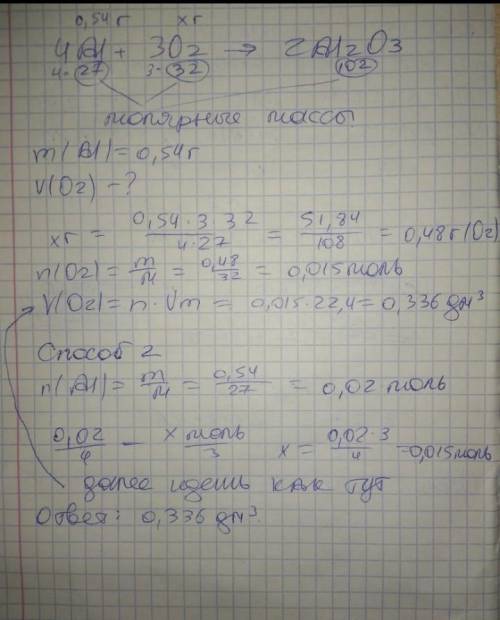 0,54 г   x г
4Al + 3O2 → 2Al2O3
4·27   3·32   102
молярные массы
m(Al) = 0,54 г
V(O2) - ?
x г = 0,54·3·32 / 4·27 = 51,84 / 108 = 0,48 г (O2)
n(O2) = m/M = 0,48/32 = 0,015 моль
V(O2) = n·Vm = 0,015·22,4 = 0,336 дм³
Способ 2
n(Al) = m/M = 0,54/27 = 0,02 моль
0,02/4 — x моль/3   x = 0,02·3/4 = 0,015 моль
далее идешь как тут
Ответ: 0,336 дм³.